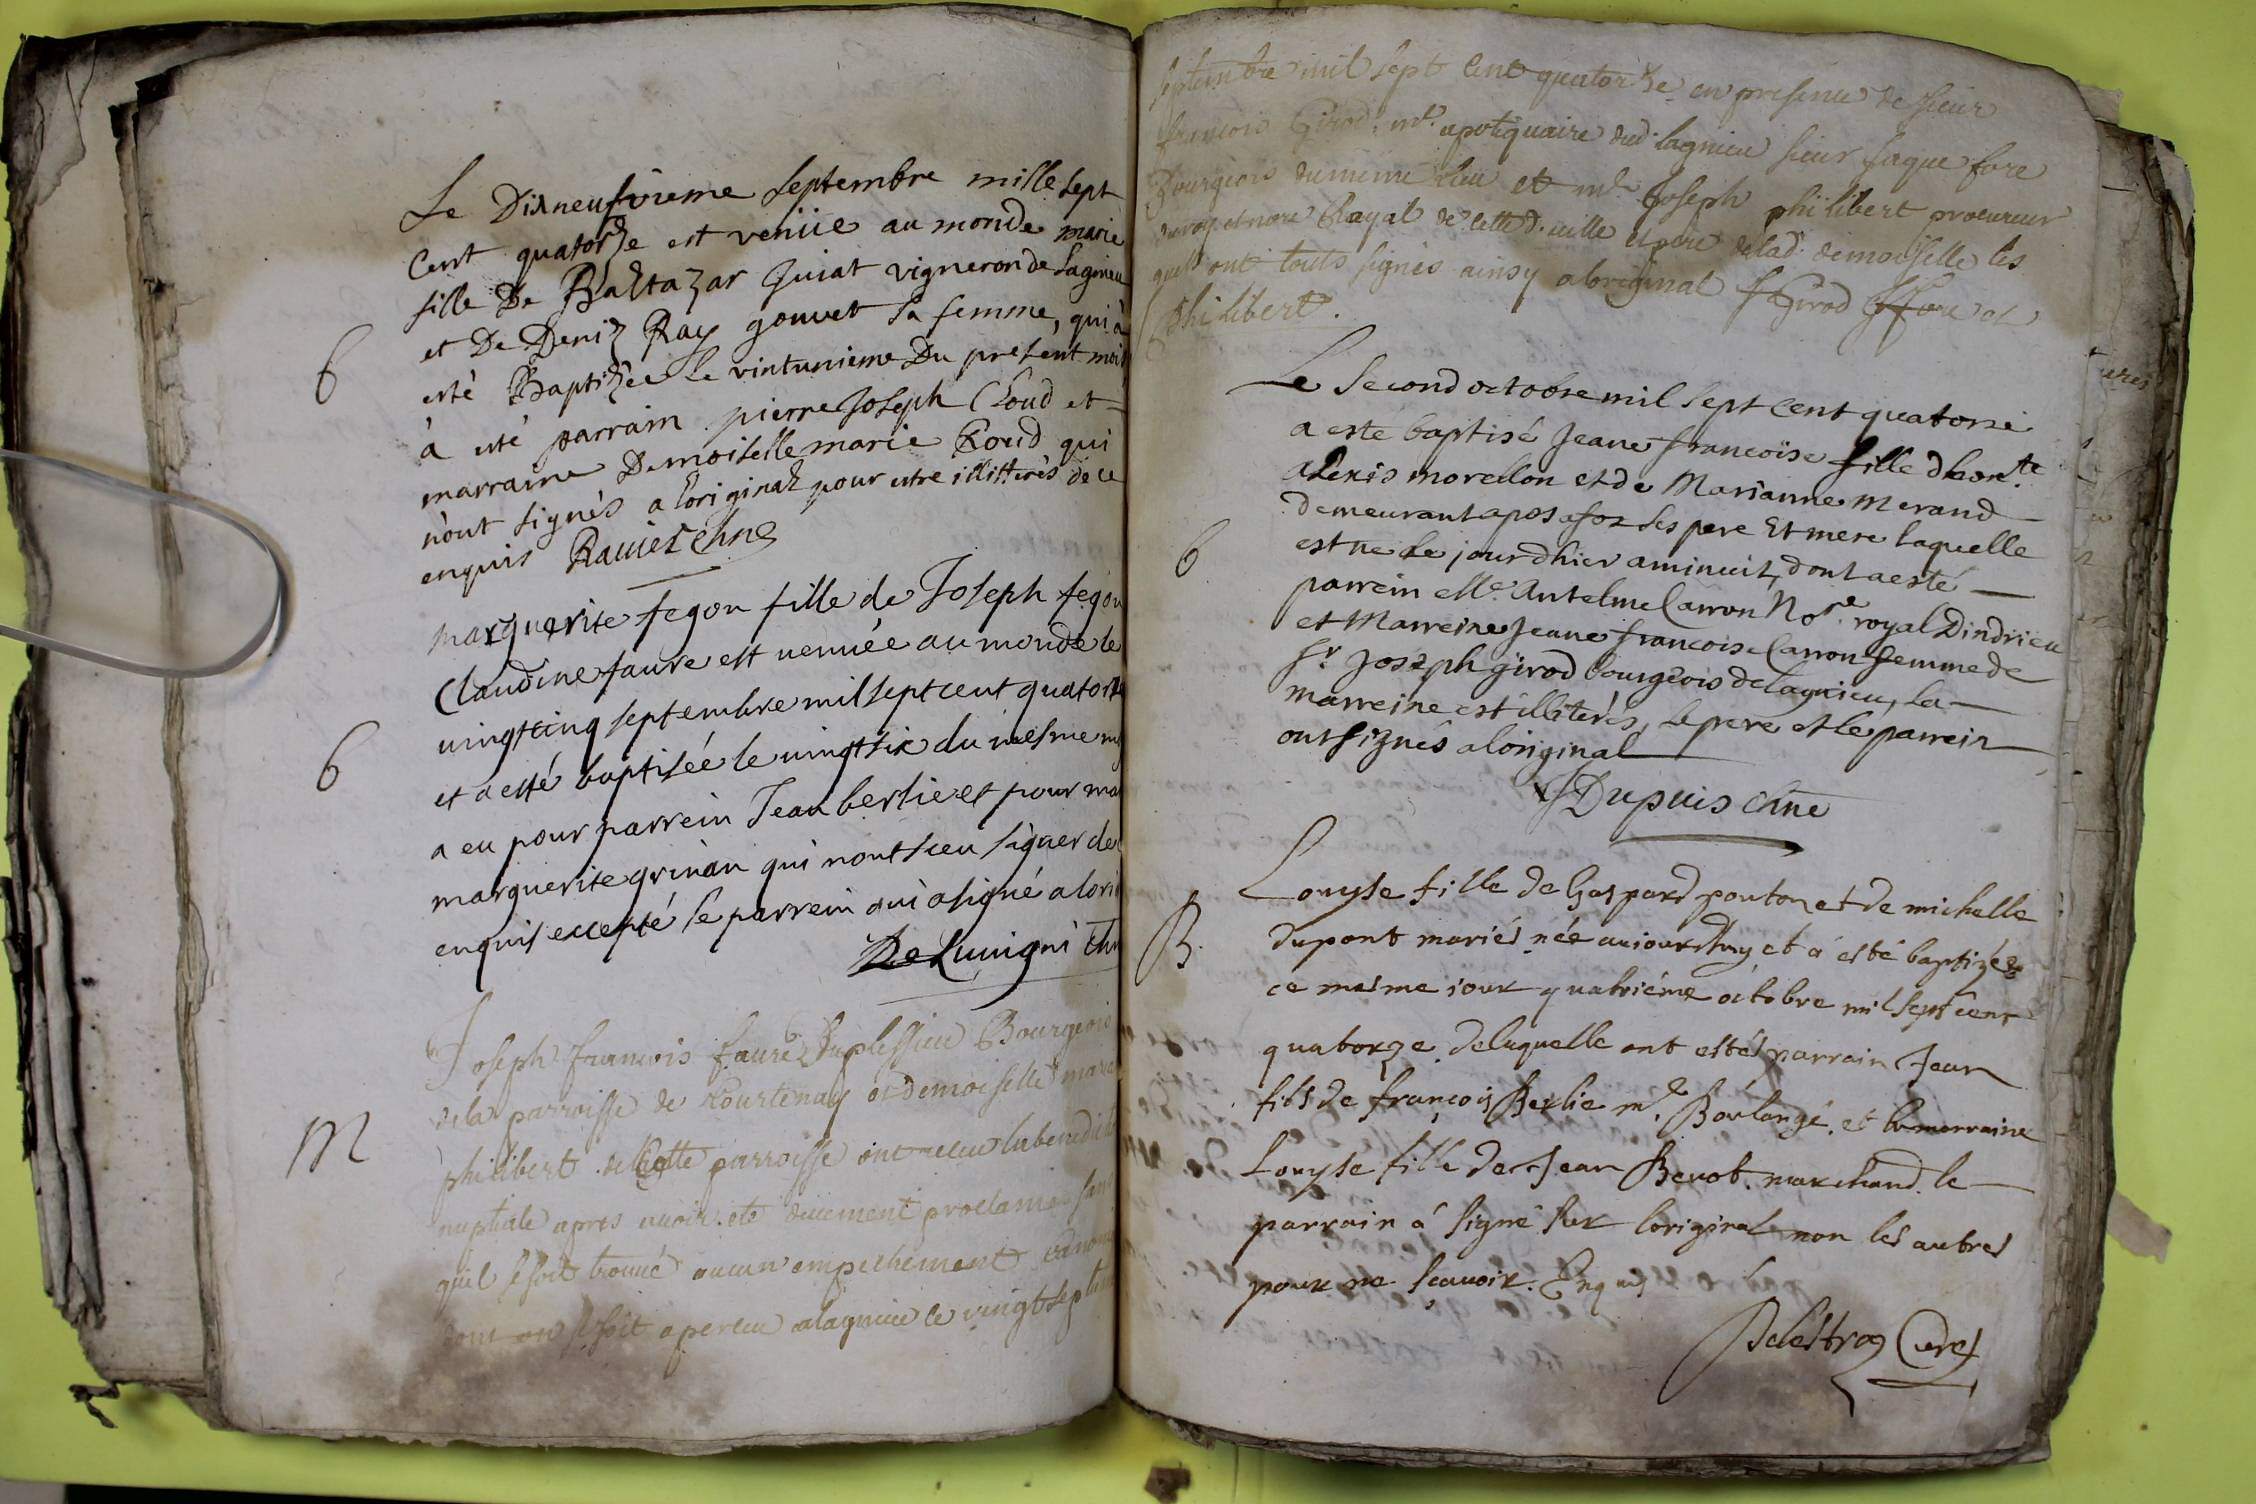 Le Dixneufvieme septembre mille sept
Cent quatorze est venüe au monde marie
fille De Baltazar Juiat vigneron de Lagnieu
et De Deniz Ray gouvet sa femme, qui à
B esté Baptizée Le vintunieme Du present mois
à esté parrain pierre Joseph Cloud et
marraine Demoiselle marie Coud qui
nont signés a l'original pour estre illitterés de ce
enquis Ravier Chne
marguerite fegon fille de Joseph fegon
Claudine faure est venuée au monde le
vingtcinq septembre mil sept cent quatorze
B et a esté baptisée le vingtsix du mesme
a eu pour parrein Jean berlie et pour
marguerite grinan qui nont sceu signer de
enquis excepté le parrein qui a signé a
De Luuigni Chn
Joseph francois faure Duplessieu Bourgeois
M de la parroisse de Courtenay et demoiselle
philibert de cette parroisse ont receu la
nuptiale apres auoir eté düement proclamé
quil se soit trouué aucun empechement
dont on se soit aperceu a lagnieu le vingt sept
septembre mil sept cent quatorze en presence de sieur
francois Girod mre apotiquaire dud. lagnieu sieur Jaque fore
Bourgeois du meme lieu et mre Joseph philibert procureur
du roy et nore Royal de cette d. uille et pere de lad. demoiselle les
quels ont touts signés ainsy a loriginal f Girod J fore et
philibert.
Le Second octobre mil sept cent quatorze
a esté baptisé Jeane francoise fille dhon.te
alexis morellon et de Marianne Merand
demeurant a posafoz ses pere Et mere laquelle
B est née le jour d'hier a minuit, dont a esté
parrein Me. Antelme Carron Nore. royal Dindrieu
et Marreine Jeane francoise Carron femme de
Sr Joseph girod bourgeois de Lagnieu, la
marreine est illiterés, le pere et le parrein
ont signés a l'original
J Dupuis Chne
Louyse fille de Gaspard ponton et de michelle
B. Dupont mariés née auiourdhuy et a esté baptizée
ce mesme iour quatriéme octobre mil sept cent
quatorze de laquelle ont estés parrain Jean
fils de françois Berlie mre. Boulangé. et la marraine
Louyse fille de Jean Benot. marchand. le
parrain a signé sur l'original non les autres
pour ne sçauoir. Enquis
Delestraz Curé